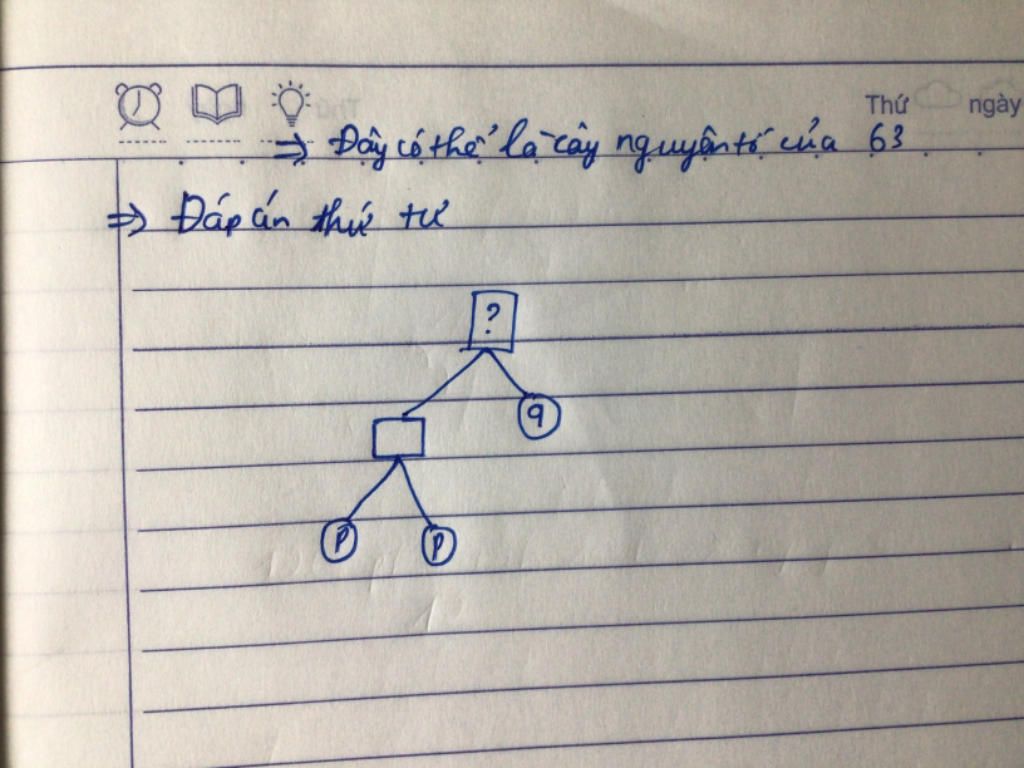 Thứ ngày
⇒ Đây có thể là cây nguyên tố của 63
⇒ Đáp án thứ tư
?
q
P P